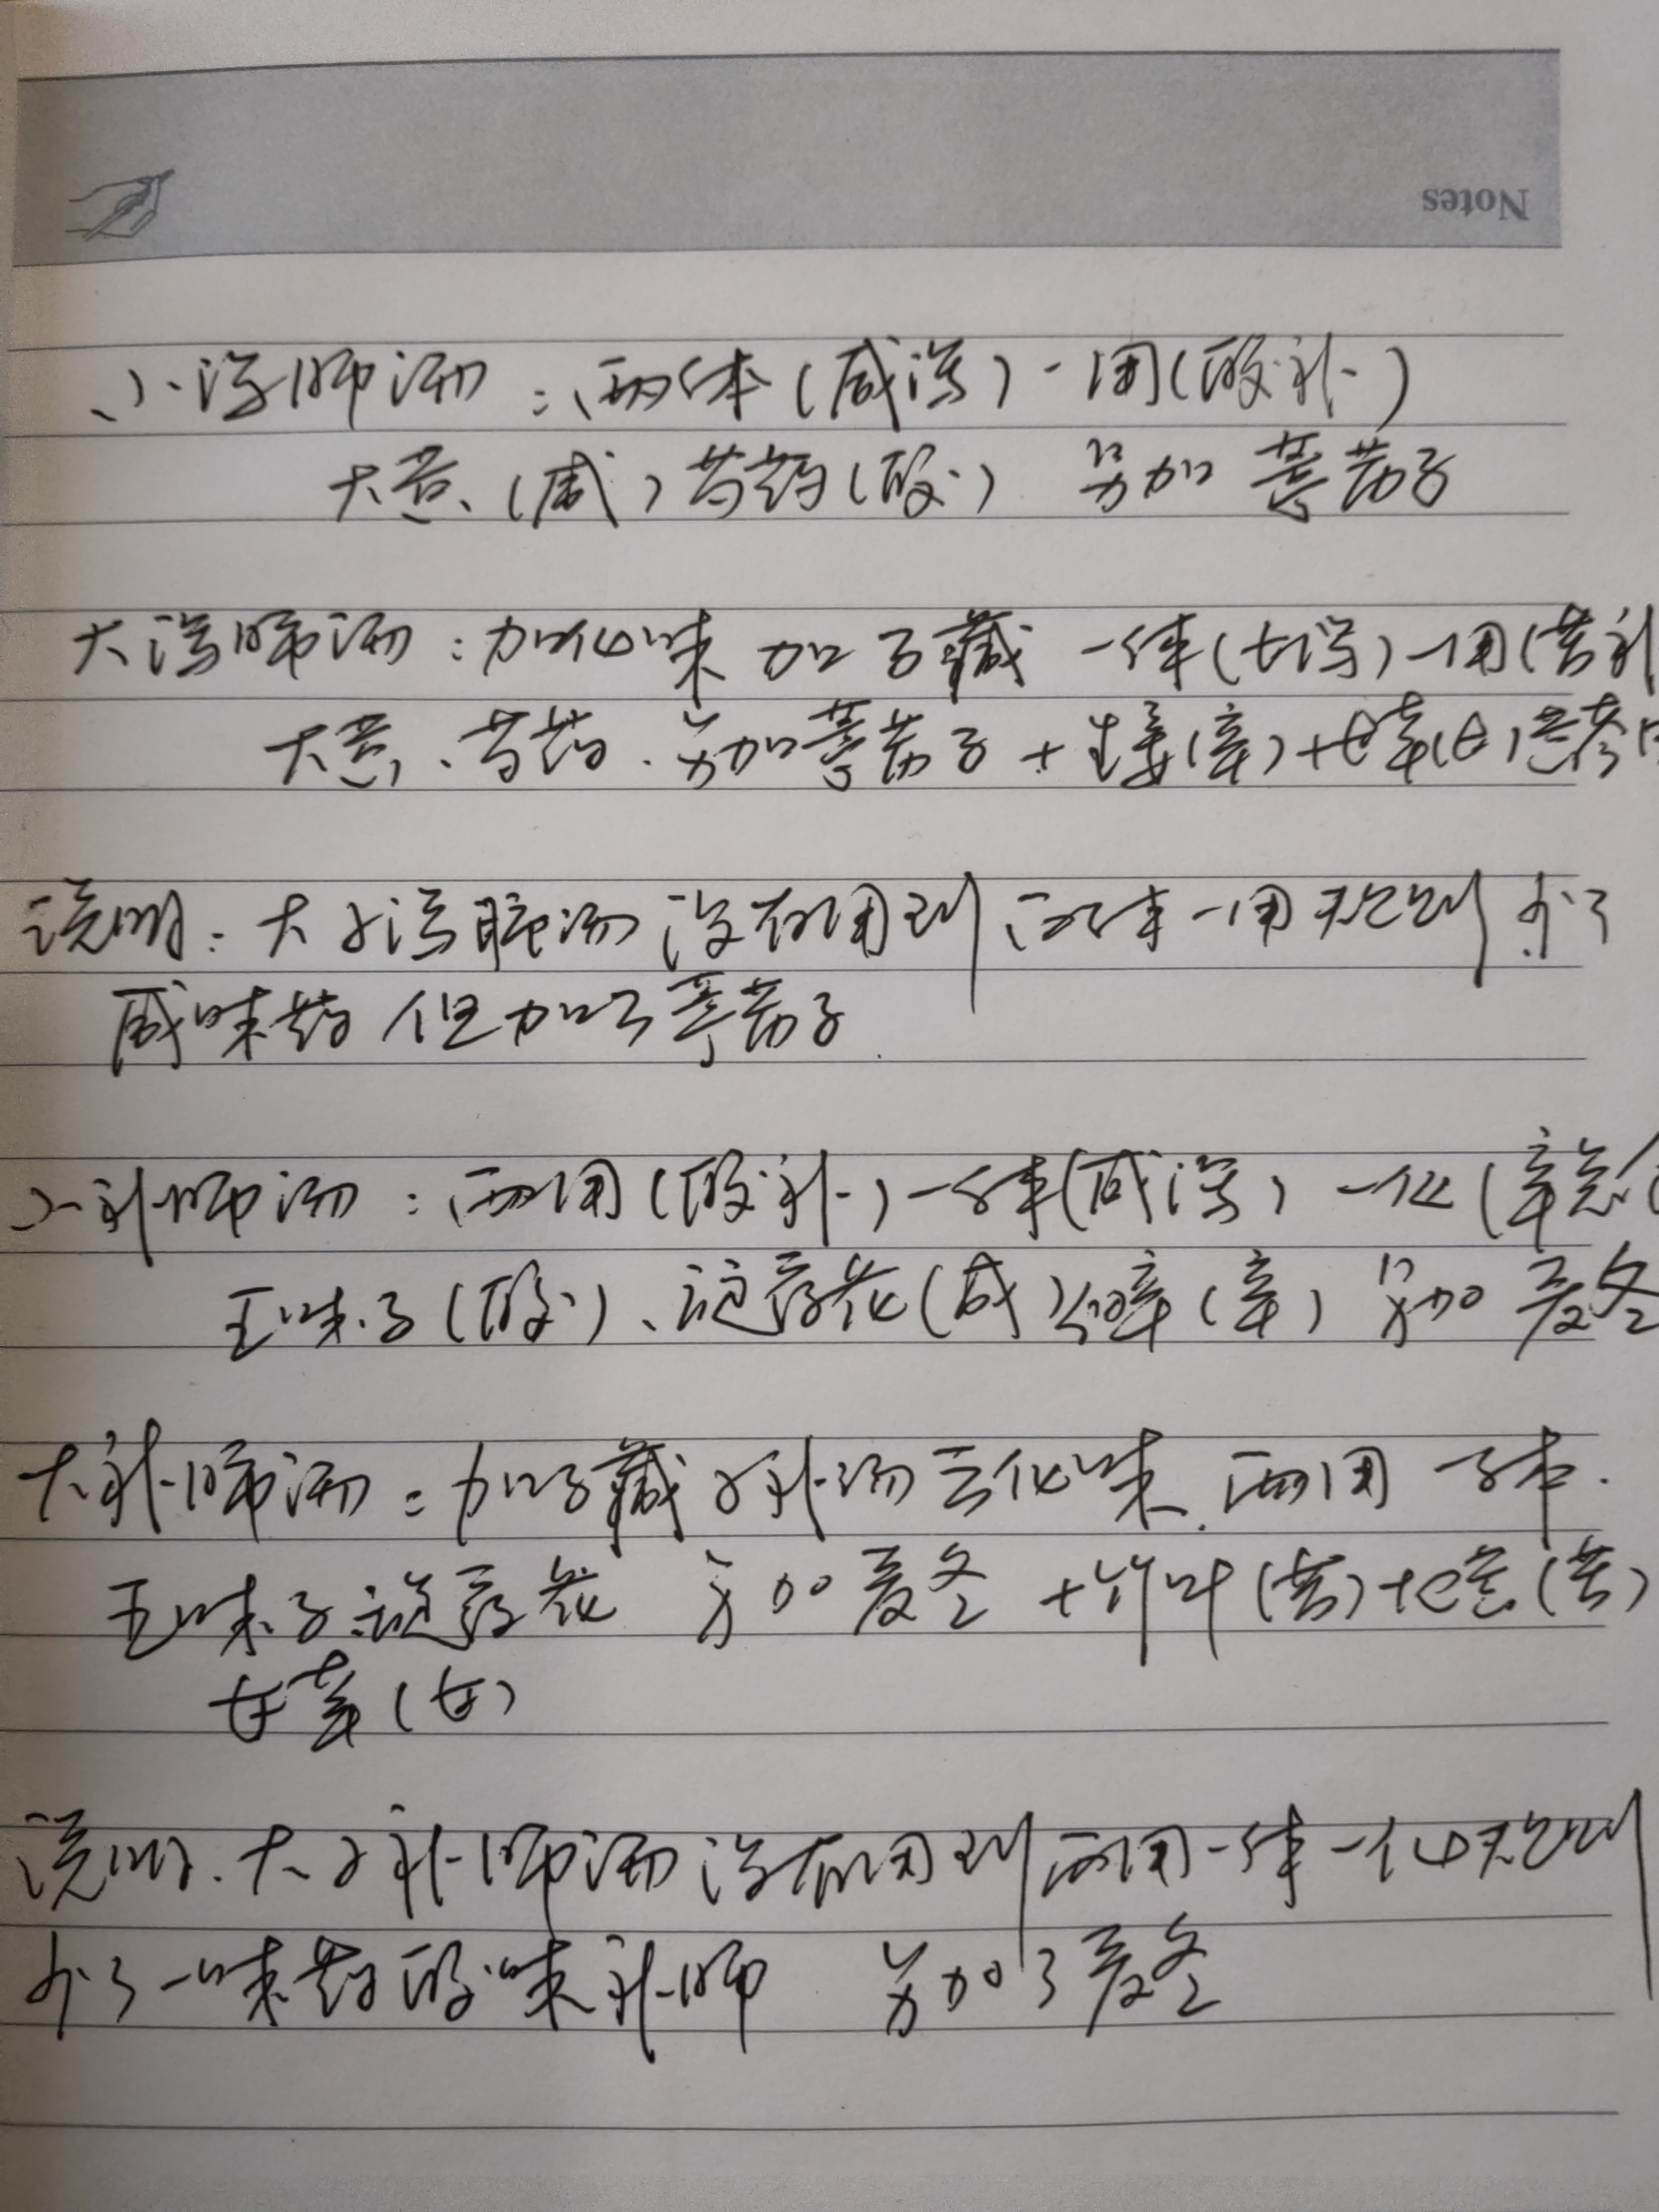 Notes
小泻肺汤：两体（咸泻）一用（酸补）
大黄、（咸）芍药（酸） 另加 葶苈子
大泻肺汤：加化味 加子藏 一体（甘泻）一用（苦补
大黄、芍药、另加葶苈子＋生姜（辛）＋甘草（甘）黄芩
说明：大小泻肺汤 没有用到 两体一用规则 少了
咸味药 但加了葶苈子
小补肺汤：两用（酸补）一体（咸泻） 一化（辛
五味子（酸）、旋覆花（咸）细辛（辛） 另加 麦冬
大补肺汤：加子藏小补汤去化味、两用 一体．
五味子旋覆花 另加麦冬 ＋竹叶（苦）地黄（苦）
甘草（甘）
说明．大小补肺汤没有用到两用一体一化规则
少了一味药酸味补肺 另加了麦冬